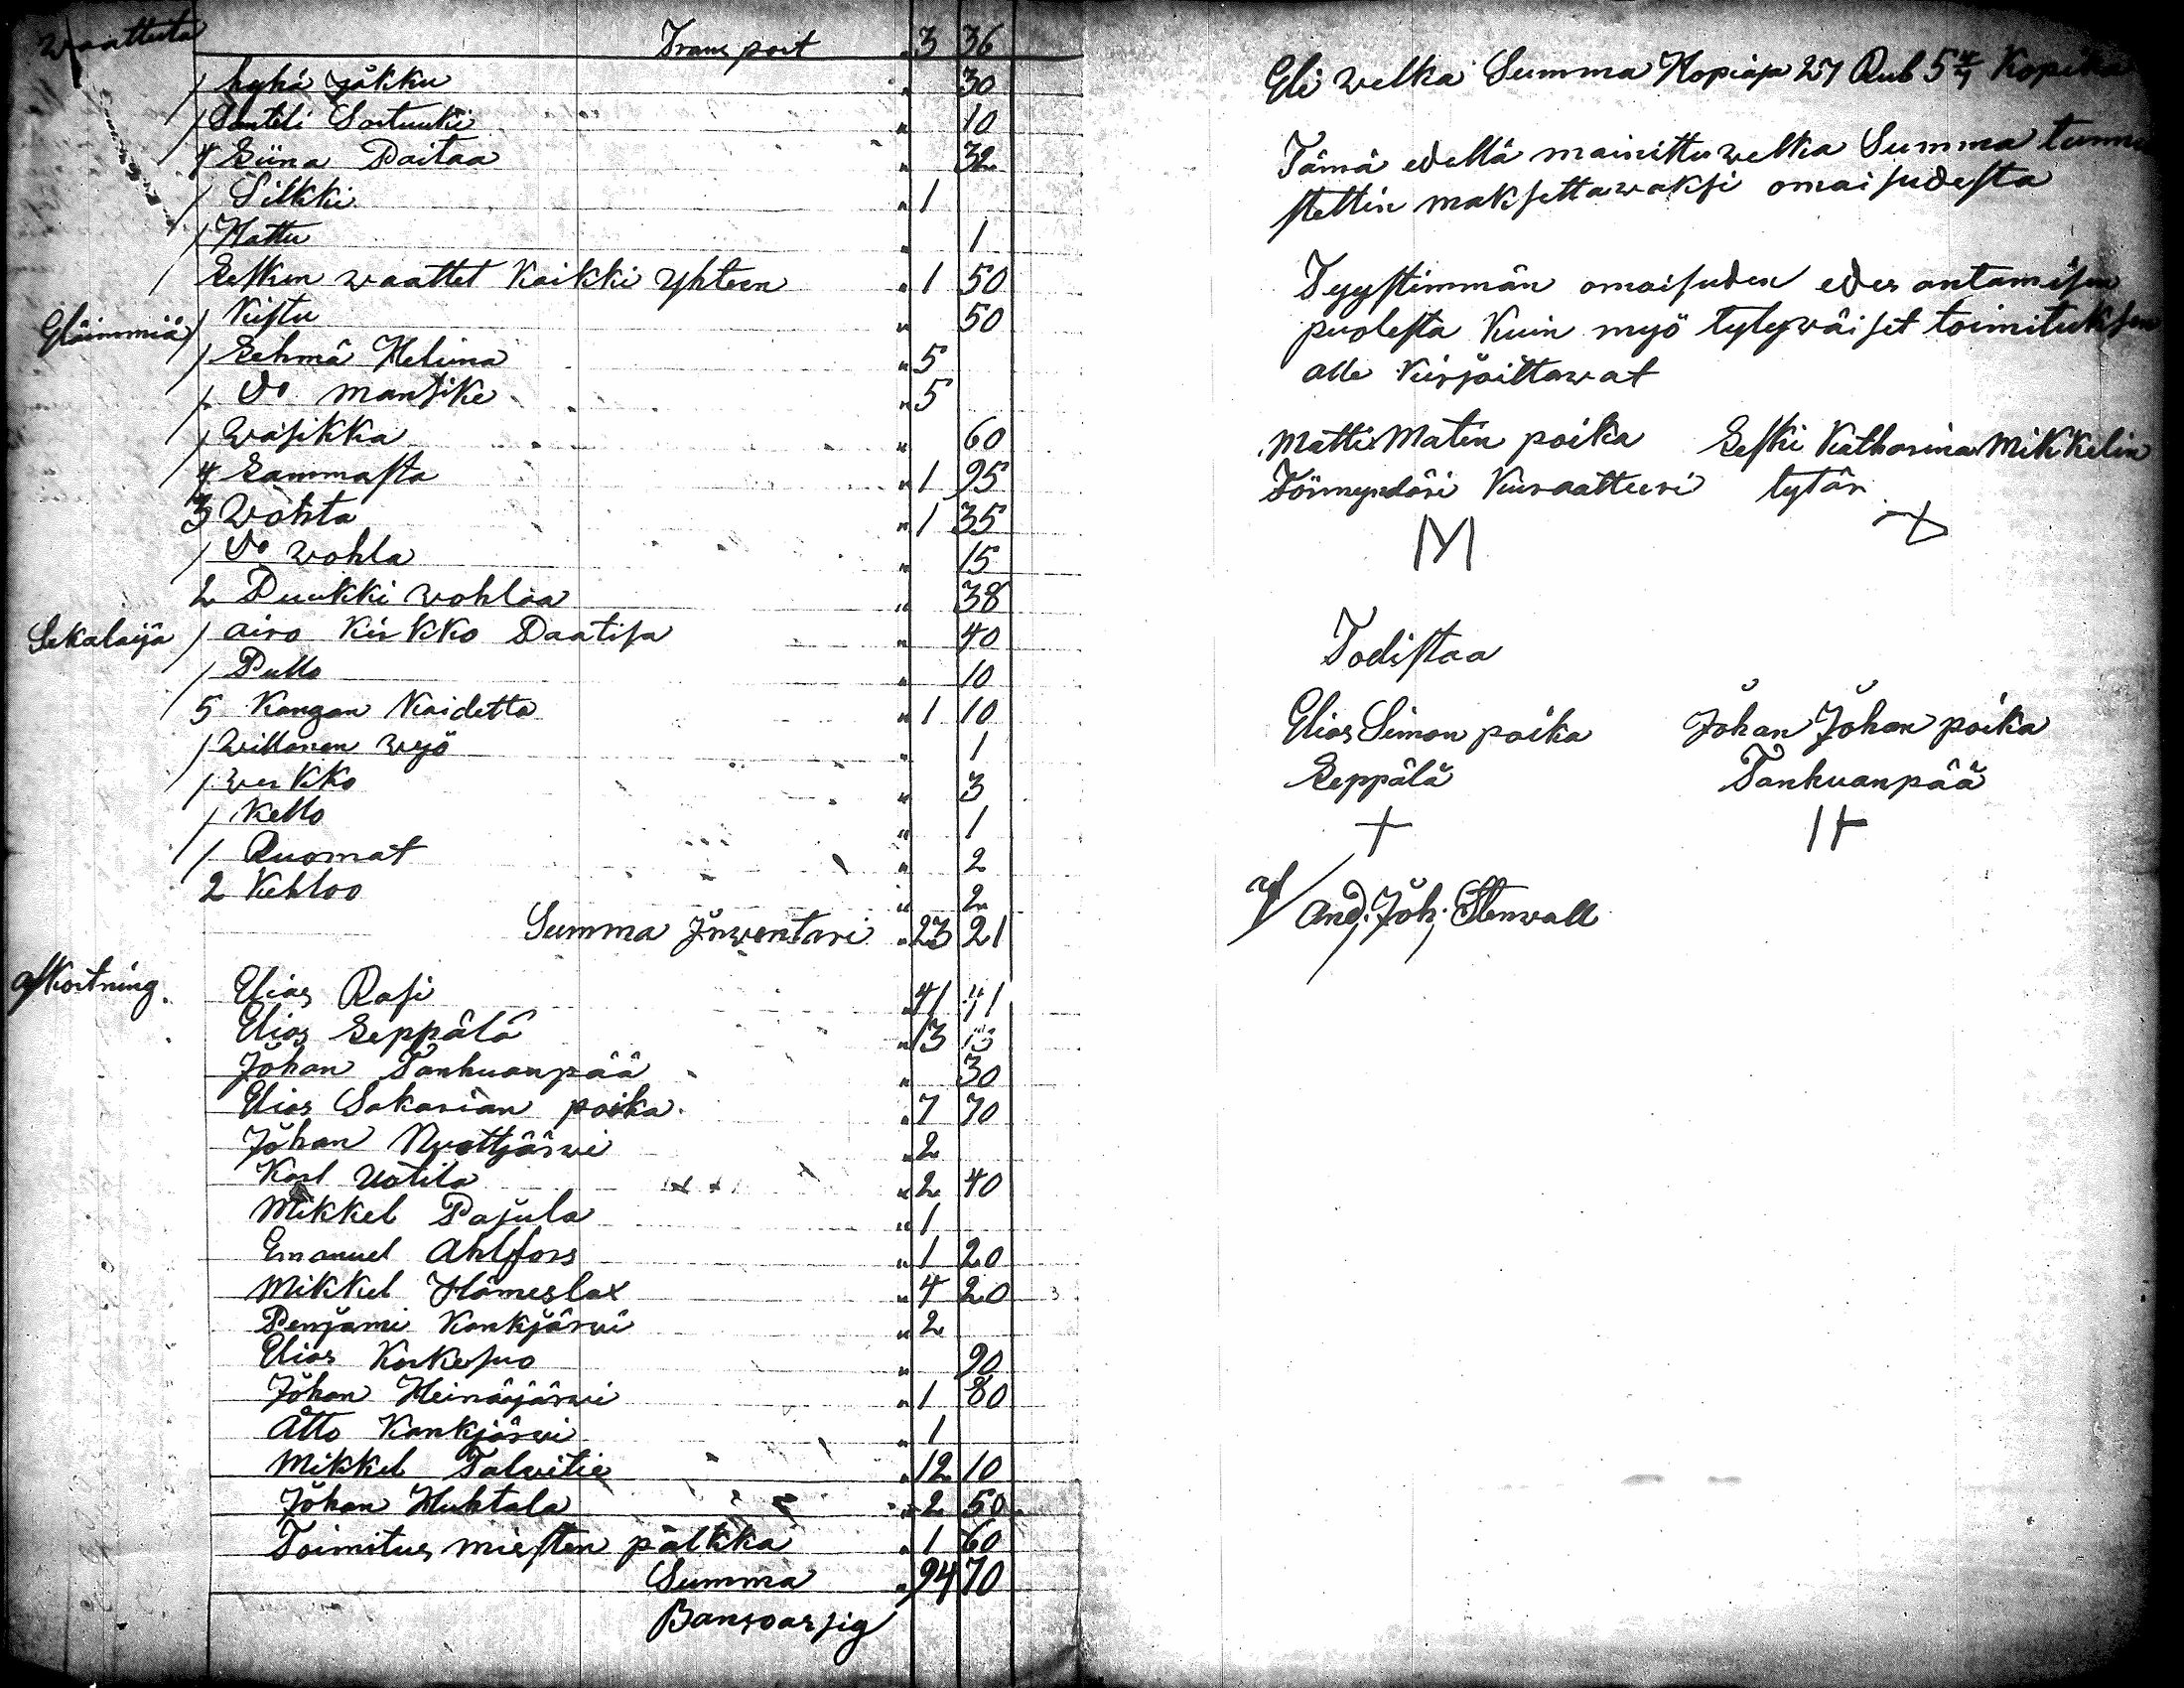 waatteita
Transport " 3 36
1 lyhä jakku " 30
1 Santeli Sortuuki " 10
4 Liina Paitaa " 32
1 Silkki " 1
1 Hattu " 1
Lesken waattet Kaikki yhteen " 1 50
1 Kistu " 50
Eläimmiä
1 Lehmä Heluna " 5
1 Do mansike " 5
1 Wasikka " 60
4 Lammasta " 1 95
3 Wohta " 1 35
1 Do wohla " 15
2 Puukki wohlaa " 38
Sekalaija
1 airo Kirkko Paatisa " 40
1 Pullo " 10
5 Kangan Kaidetta " 1 10
1 Willanen wyö " 1
1 werkko " 3
1 Kello " 1
1 Ruomat " 2
2 Kehloo " 2
Summa Inwentari " 23 21
afkortning.
Elias Rasi " 41 41
Elias Seppälä " 13 13
Johan Tanhuanpää " 30
Elias Sakarian poika " 7 70
Johan Nyättjärwi " 2
Karl Uotila " 2 40
Mikkel Pajula " 1
Emanuel Ahlfors " 1 20
Mikkel Hömeslax " 4 20
Penjami Kankjärwi " 2
Elias Korkesuo " 90
Johan Heinäjärwi " 1 80
Atto Kankjärwi " 1
Mikkel Talwitie " 12 10
Johan Huhtala " 2 50
Toimitus miesten palkka " 1 60
Summa " 94 70
Eli welka Summa Hopiaja 27 Rub 5 4/7 Kopekaa
Tämä edellä mainittu welka Summa tunnu
stettin maksettawaksi omaisudesta
Tyystimmän omaisuden edes antamisen
puolesta Kuin myö tytywäiset toimituksen
alle Kirjoittawat
Matti Matin poika Leski Katharina Mikkelin
Förmyndäri Kuraatteeri tytär
M
Todistaa
Elias Simon poika Johan Johan poika
Seppälä Tanhuanpää
And. Joh. Stenwall